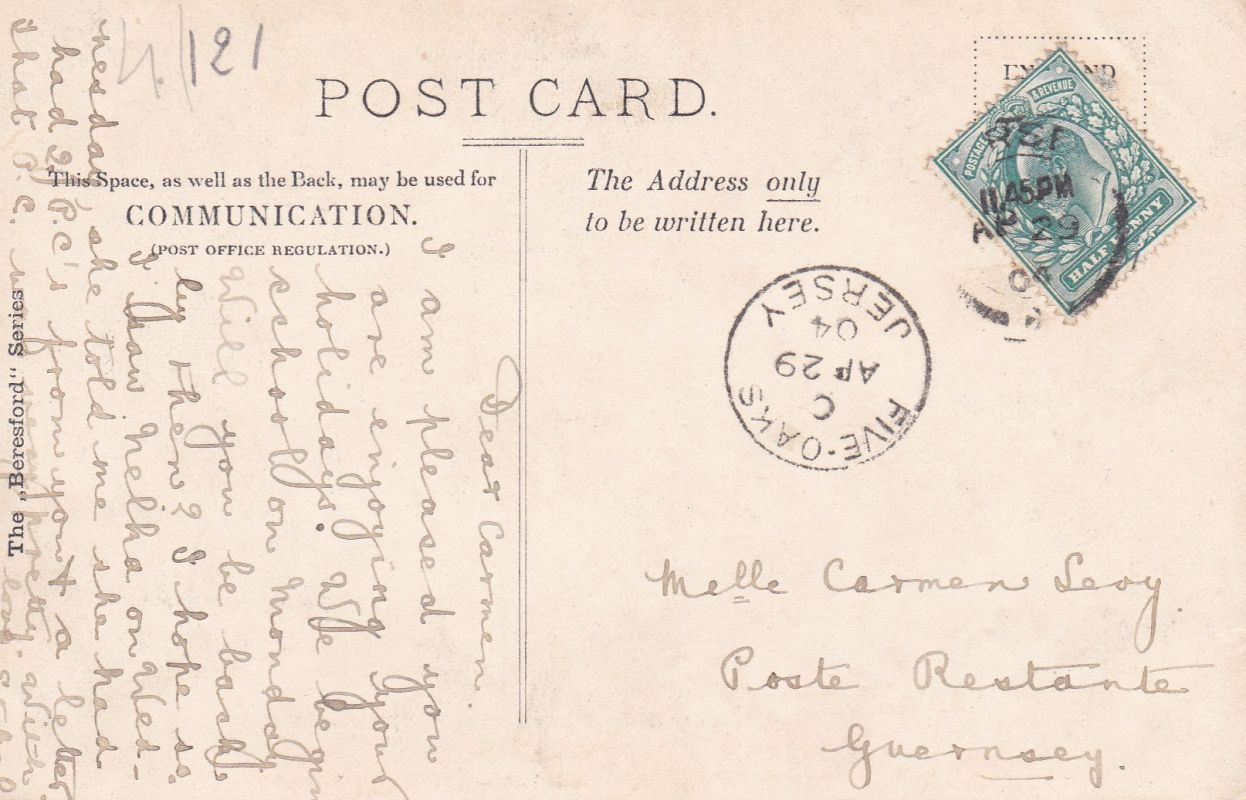 4/121
POST CARD.
This Space, as well as the Back, may be used for
COMMUNICATION.
(POST OFFICE REGULATION.)
The Address only
to be written here.
The „Beresford" Series
POSTAGE & REVENUE
HALFPENNY
11.45PM
AP 29
04
FIVE-OAKS
C
AP 29
04
JERSEY
Melle Carmen Levy
Poste Restante
Guernsey.
Dear Carmen.
I am pleased you
are enjoying your
holidays. We begin
school on Monday
Will you be back
by then? I hope so.
I saw Nelha on Wed-
nesday, she told me she had
had 2 P.C's from you & a letter
that P.C. was very pretty. With
love